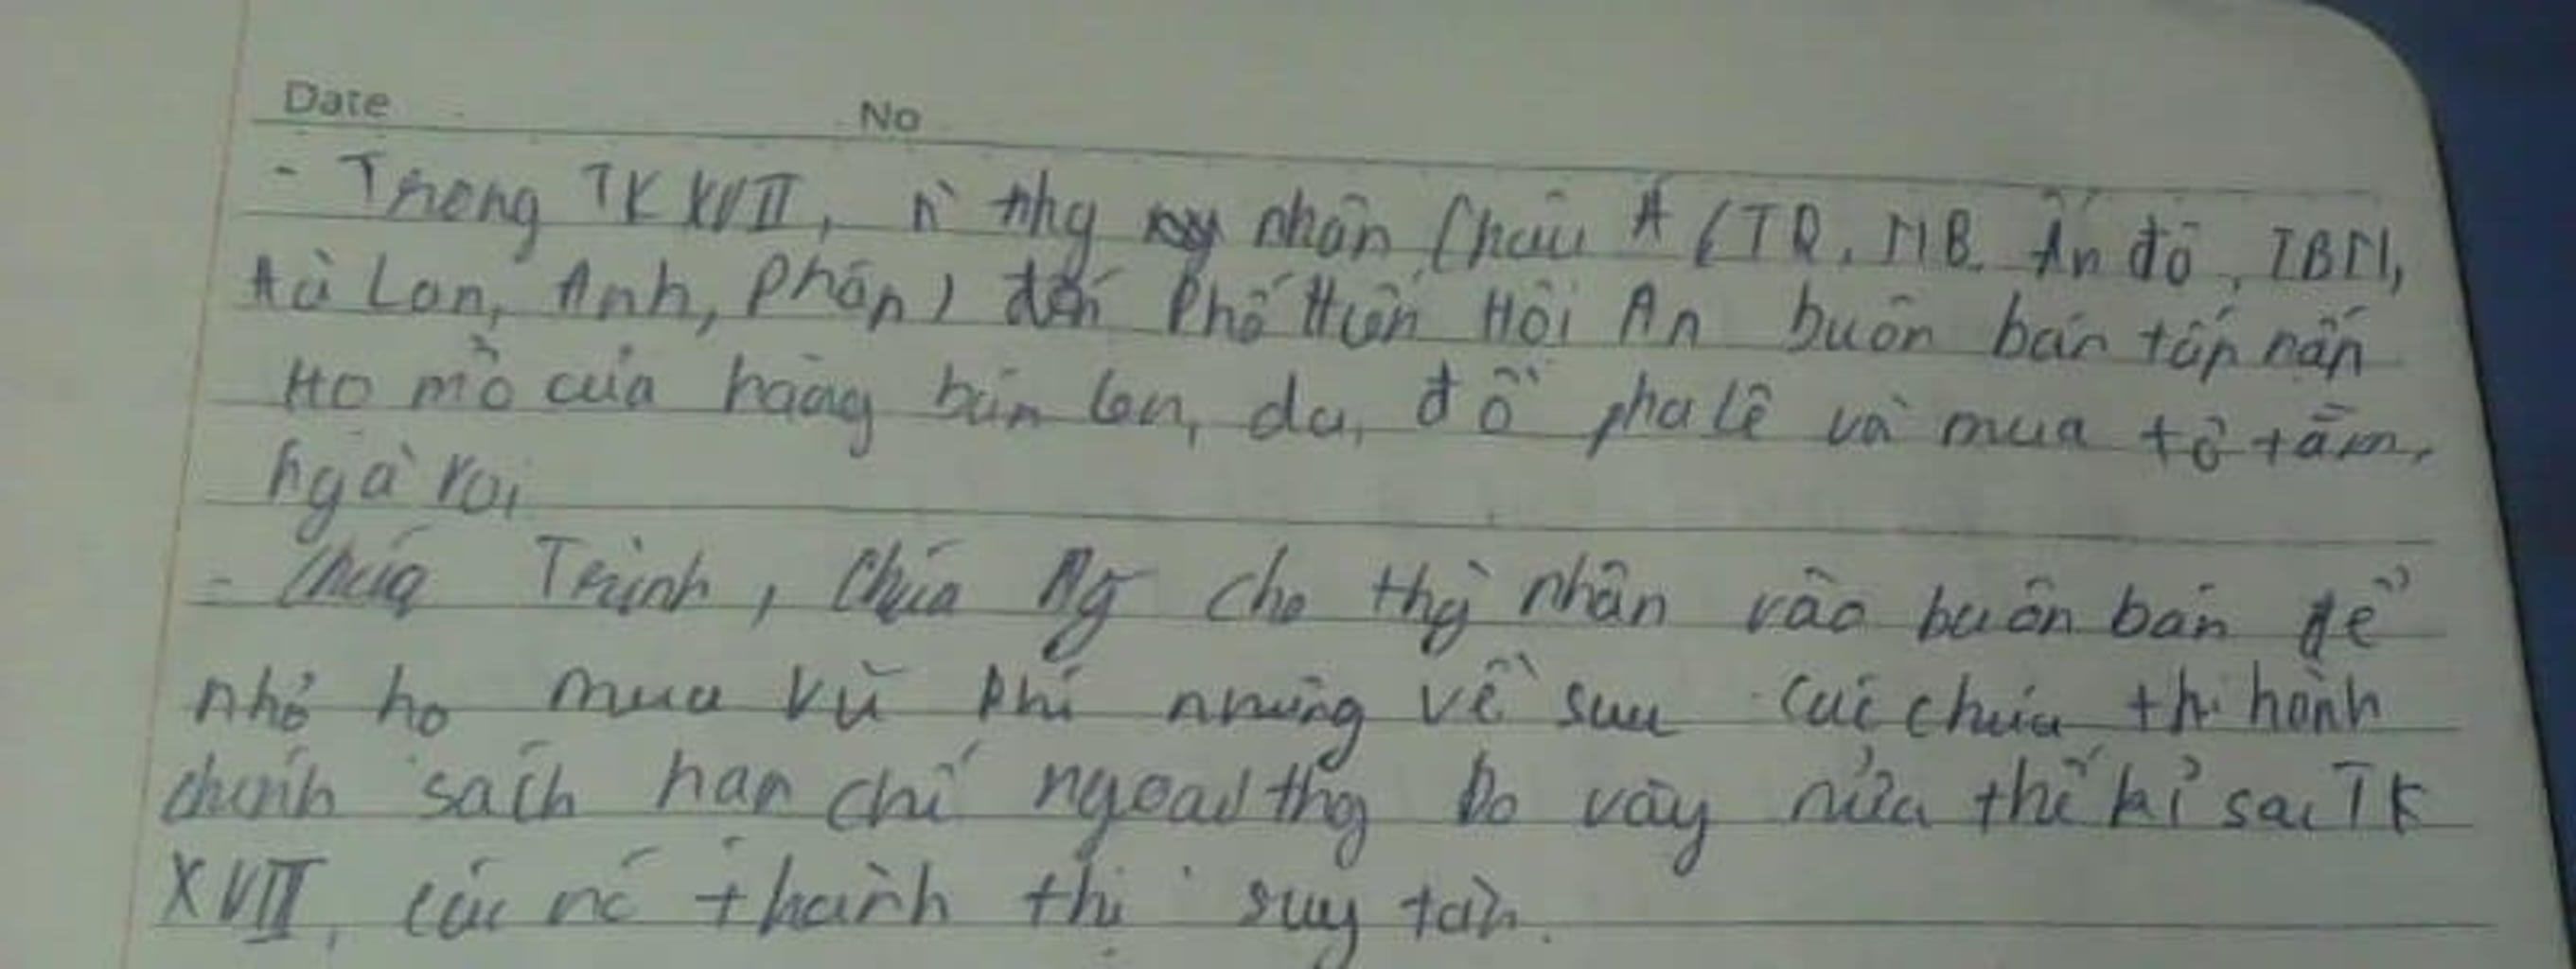 Date No
- Trong TK XVII, n' thg nhân Châu Á (TQ, NB, Ấn độ, TBN,
Hà Lan, Anh, Pháp) đến Phố Hiến Hội An buôn bán tấp nập
Họ mở cửa hàng bán len, dạ, đồ pha lê và mua tơ tằm,
ngà voi
- Chúa Trịnh, Chúa Ng̃ cho thg nhân vào buôn bán để
nhờ họ mua vũ khí nhưng về sau các chúa thi hành
chính sách hạn chế ngoại thg Do vậy nửa thế kỉ sau TK
XVII, các thành thị suy tàn.